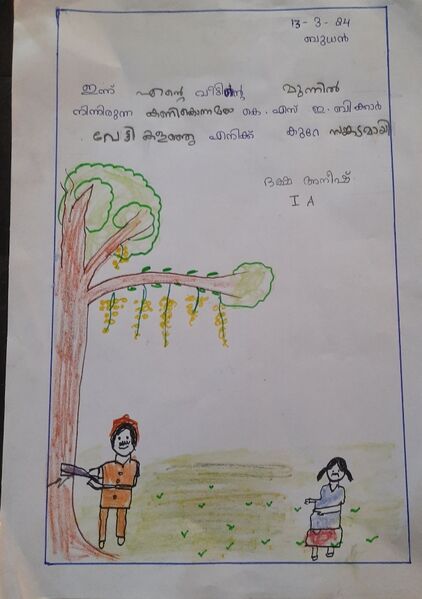 13-3-24
ബുധൻ
ഇന്ന് എന്റെ വീടിന്റെ മുന്നിൽ
നിന്നിരുന്ന കണികൊന്നയെ കെ.എസ് ഇ.ബിക്കാർ
വേട്ടി കളഞ്ഞു എനിക്ക് കുറേ സങ്കടമായി
ദക്ഷ അനീഷ്
I A